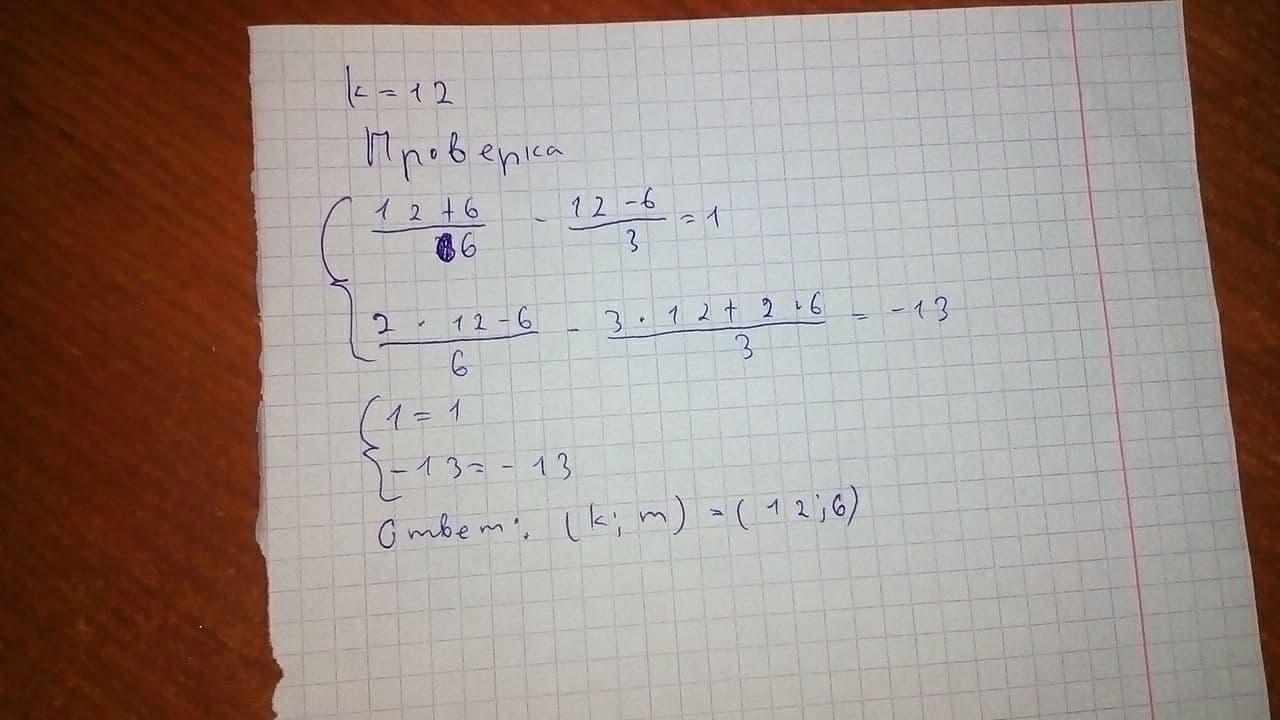 k = 12
Проверка
{ (12+6)/6 - (12-6)/3 = 1
(2 · 12 - 6)/6 - (3 · 12 + 2 · 6)/3 = -13
{ 1 = 1
-13 = -13
Ответ: (k; m) = (12; 6)